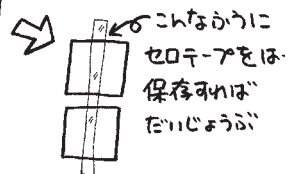 こんなふうに
セロテープをは
保存すれば
だいじょうぶ